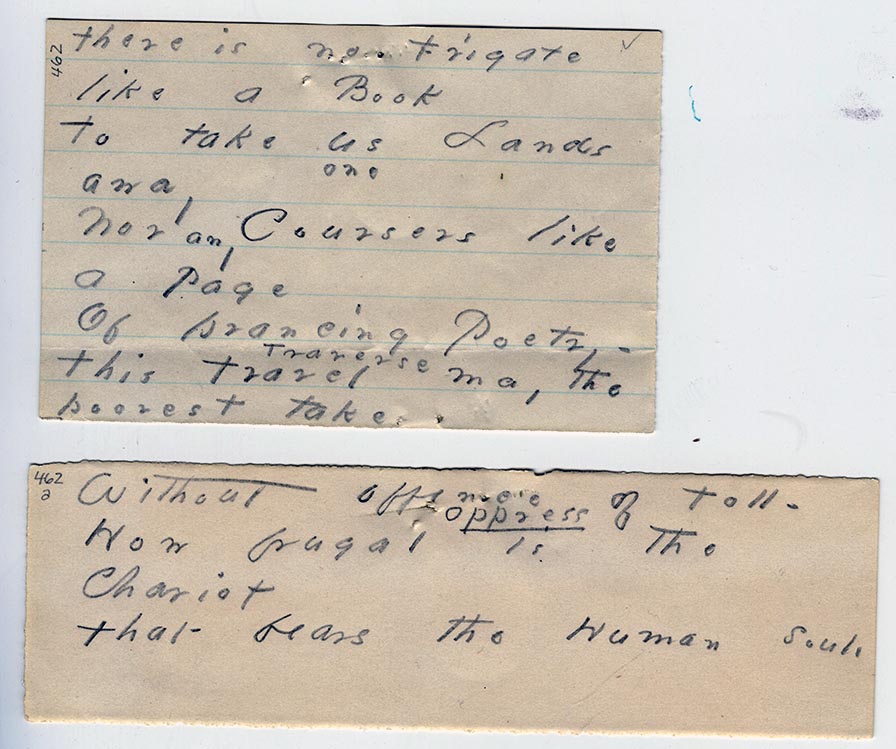 462
there is no Frigate
like a Book
To take us Lands
away
one
Nor any Coursers like
a Page
Of prancing Poetry -
Traverse
this travel may the
poorest take.
462
a
Without offence of toll -
oppress
How frugal is the
Chariot
that bears the Human Soul.